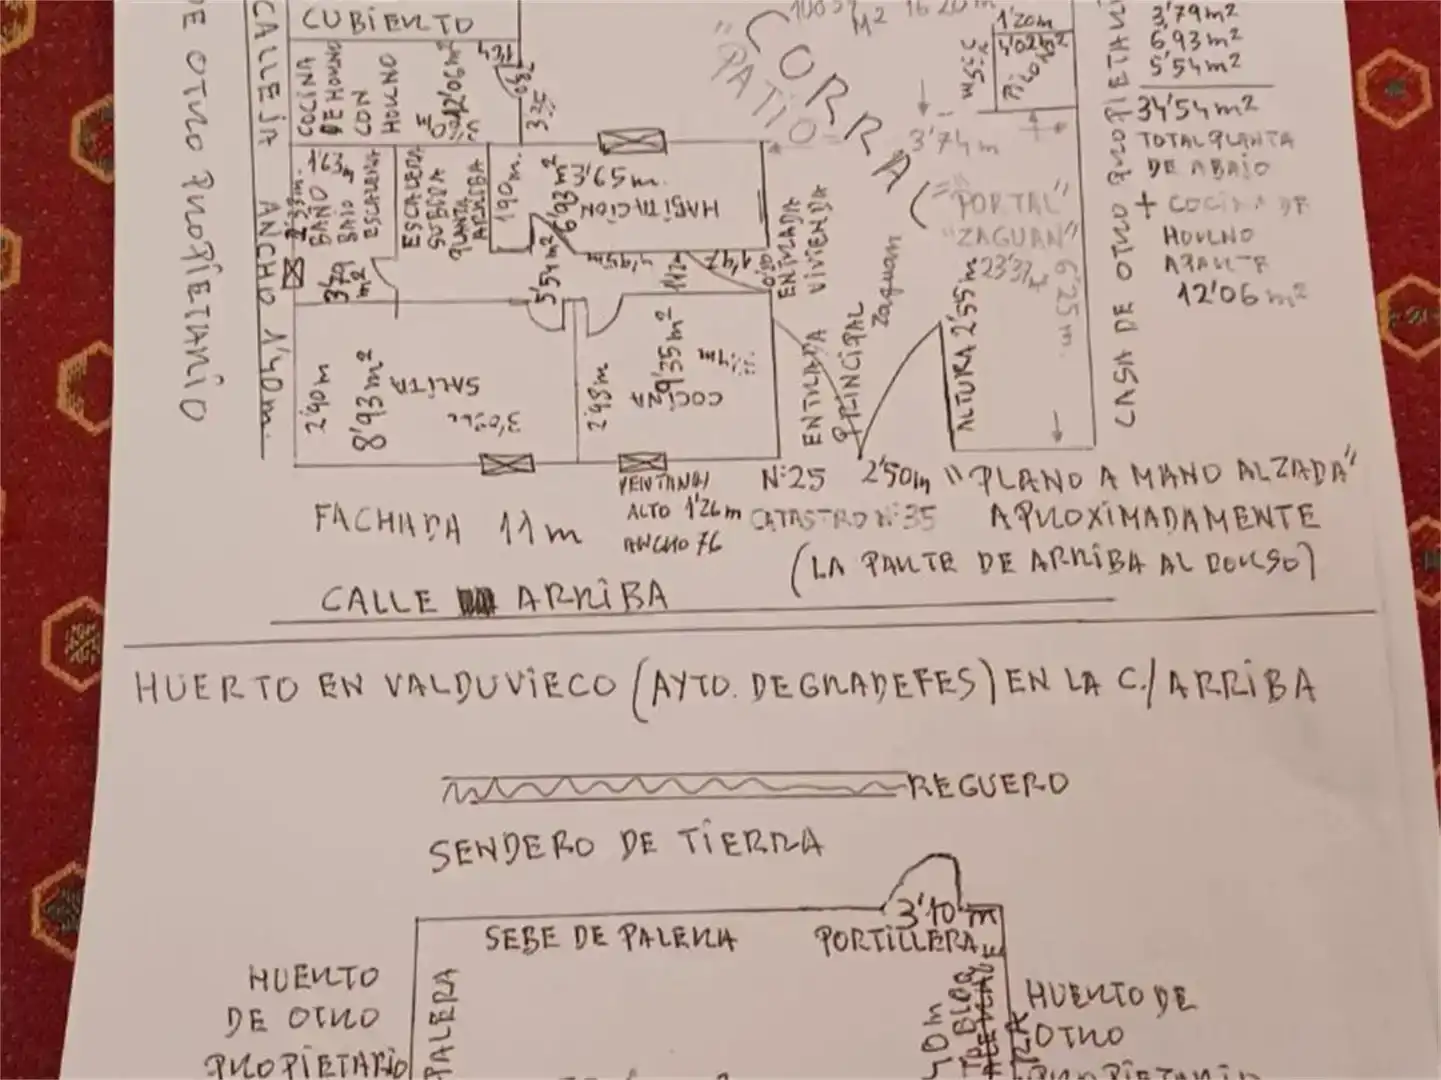 CUBIERTO
COCINA
DE HORNO
CON
HORNO
12'06 m²
3'25
CORRAL
"PATIO"
M² 16'20 m
W.S.C
1'20m
4'02 m²
3'79 m²
6'93 m²
5'54 m²
34'54 m²
TOTAL PLANTA
DE ABAJO
+ COCINA DE
HORNO
APARTE
12'06 m²
DE OTRO PROPIETARIO
CALLEJA ANCHO 1'40m.
CASA DE OTRO PROPIETARIO
BAÑO 1'63
BAJO
ESCALERA
3'79
m²
ESCALERA
SUBIDA
PLANTA
ARRIBA
1'90m.
6'93 m²
3'65m.
HABITACIÓN
5'54m²
4'95m
1'12
1'47
ENTRADA
VIVIENDA
3'74m
"PORTAL"
"ZAGUAN"
6'25m.
ALTURA 2'55m
ENTRADA
PRINCIPAL
Zaguam
2'90m
8'93m²
SALITA
2'93m
9'35m²
COCINA
VENTANA
ALTO 1'26m
ANCHO 76
Nº25 2'50m
CATASTRO Nº35
"PLANO A MANO ALZADA"
APROXIMADAMENTE
(LA PARTE DE ARRIBA AL DORSO)
FACHADA 11m
CALLE ARRIBA
HUERTO EN VALDUVIECO (AYTO. DE GRADEFES) EN LA C./ARRIBA
REGUERO
SENDERO DE TIERRA
3'10 m
SEBE DE PALERA
PORTILLERA
HUERTO
DE OTRO
PROPIETARIO
PALERA
HUERTO DE
OTRO
PROPIETARIO